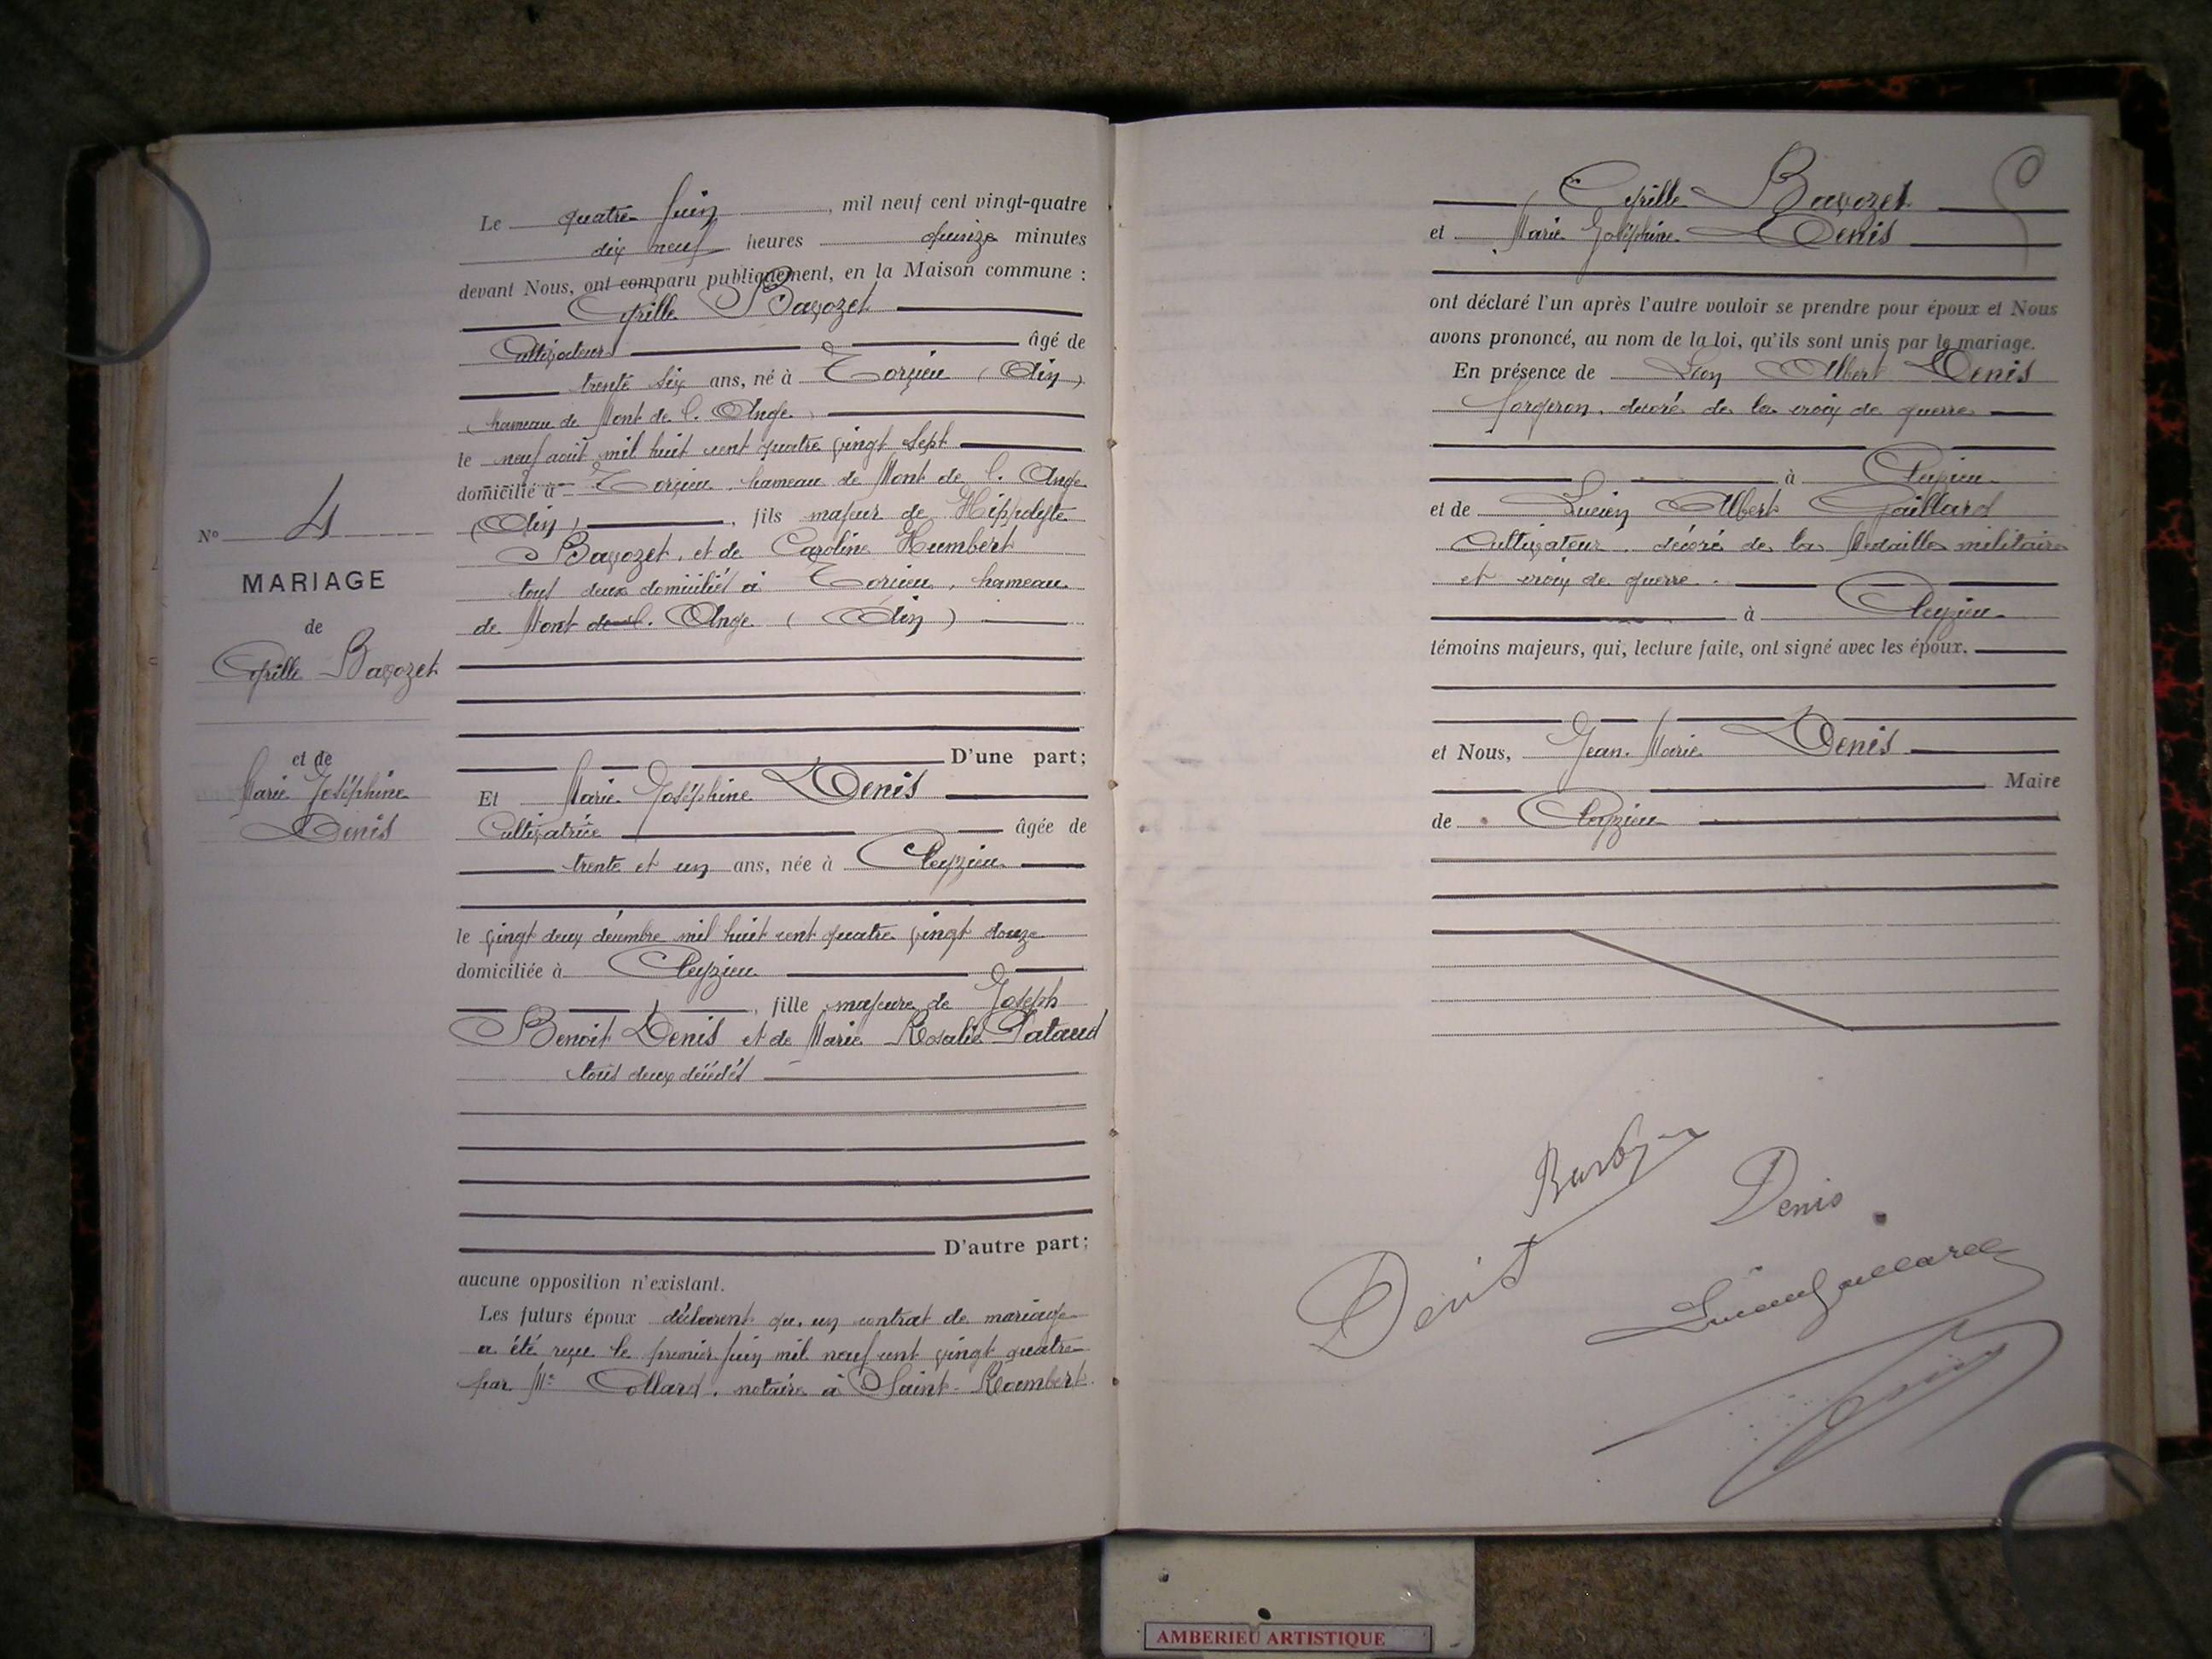 Le quatre Juin, mil neuf cent vingt-quatre
dix neuf heures quinze minutes
devant Nous, ont comparu publiquement, en la Maison commune :
Cyrille Bavozet
Cultivateur âgé de
trente six ans, né à Torcieu (Ain)
hameau de Mont de l'Ange
le neuf août mil huit cent quatre vingt sept
domicilié à Torcieu, hameau de Mont de l'Ange
(Ain), fils majeur de Hippolyte
Bavozet, et de Caroline Humbert
tous deux domiciliés à Torcieu, hameau
de Mont de l'Ange (Ain)
D'une part;
Et Marie Joséphine Denis
Cultivatrice âgée de
trente et un ans, née à Cleyzieu
le vingt deux décembre mil huit cent quatre vingt douze
domiciliée à Cleyzieu
, fille majeure de Joseph
Benoit Denis et de Marie Rosalie Pataud
tous deux décédés
D'autre part;
aucune opposition n'existant.
Les futurs époux déclarent qu'un contrat de mariage
a été reçu le premier juin mil neuf cent vingt quatre
par Me Collard, notaire à Saint-Rambert.
No 4
MARIAGE
de
Cyrille Bavozet
et de
Marie Joséphine
Denis
Cyrille Bavozet
et Marie Joséphine Denis
ont déclaré l'un après l'autre vouloir se prendre pour époux et Nous
avons prononcé, au nom de la loi, qu'ils sont unis par le mariage.
En présence de Léon Albert Denis
forgeron, décoré de la croix de guerre
à Cleyzieu
et de Lucien Albert Gaillard
Cultivateur, décoré de la Médaille militaire
et croix de guerre.
à Cleyzieu
témoins majeurs, qui, lecture faite, ont signé avec les époux.
et Nous, Jean-Marie Denis
Maire
de Cleyzieu
Denis
Lucien Gaillard
Denis
AMBERIEU ARTISTIQUE